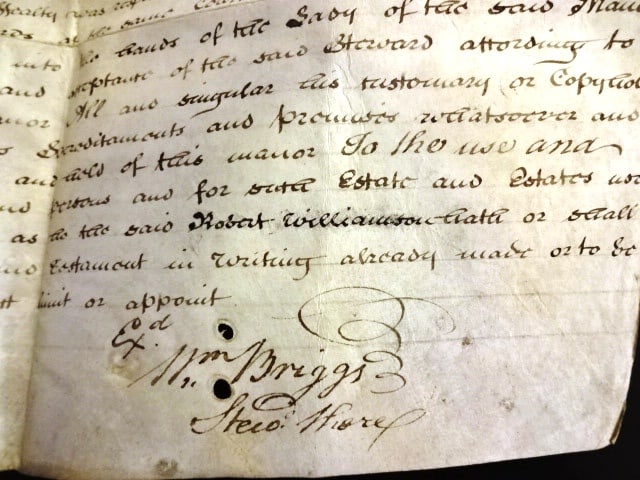 Fealty was
at the same Court
into the hands of the Lady of the said Man
and acceptance of the said Steward according to
All and singular his customary or Copyhol
Hereditaments and premises whatsoever and
and held of this manor To the use and
persons and for such Estate and Estates
as he the said Robert Williamson hath or shall
Testament in writing already made or to be
limit or appoint
Exd
Wm Briggs
Stewd. there